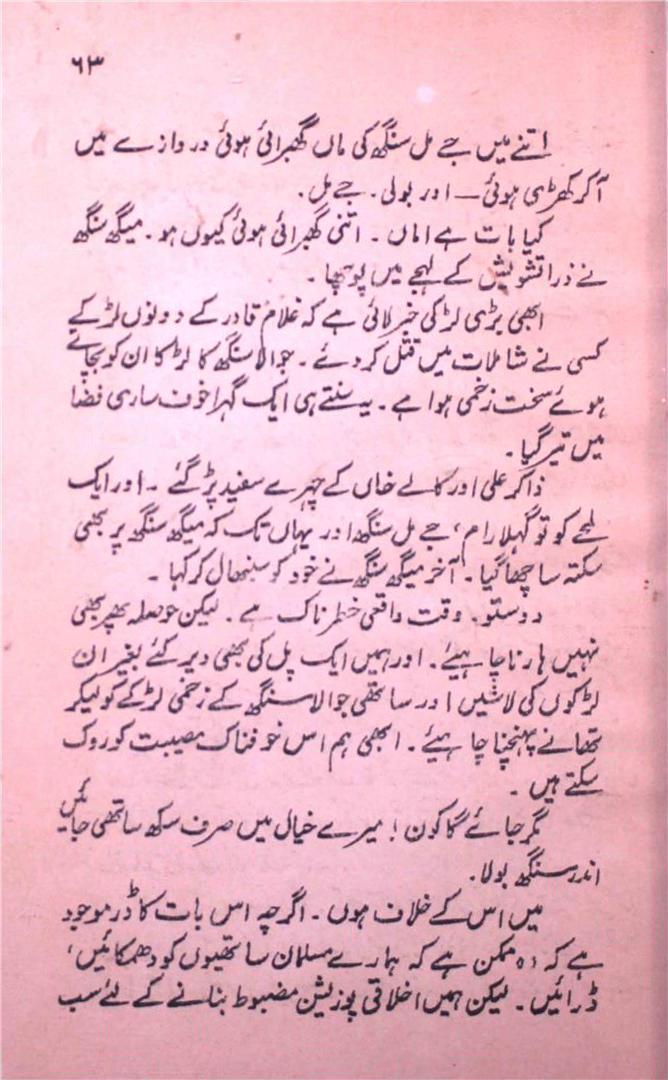 ۶۳
اتنے میں جے مل سنگھ کی ماں گھبرائی ہوئی دروازے میں
آکر کھڑی ہوئی — اور بولی۔ جے مل۔
کیا بات ہے اماں۔ اتنی گھبرائی ہوئی کیوں ہو۔ میگھ سنگھ
نے ذرا تشویش کے لہجے میں پوچھا۔
ابھی بڑی لڑکی خبر لائی ہے کہ غلام قادر کے دونوں لڑکے
کسی نے شاملات میں قتل کر دئے۔ جوالا سنگھ کا لڑکا ان کو بچاتے
ہوئے سخت زخمی ہوا ہے۔ یہ سنتے ہی ایک گہرا خوف ساری فضا
میں تیر گیا۔
ذاکر علی اور کالے خاں کے چہرے سفید پڑ گئے۔ اور ایک
لمحے کو تو گہلا رام، جے مل سنگھ اور یہاں تک کہ میگھ سنگھ پر بھی
سکتہ سا چھا گیا۔ آخر میگھ سنگھ نے خود کو سنبھال کر کہا۔
دوستو۔ وقت واقعی خطرناک ہے۔ لیکن حوصلہ پھر بھی
نہیں ہارنا چاہیئے۔ اور ہمیں ایک پل کی بھی دیر کئے بغیر ان
لڑکوں کی لاشیں اور ساتھی جوالا سنگھ کے زخمی لڑکے کو لیکر
تھانے پہنچنا چاہیئے۔ ابھی ہم اس خوفناک مصیبت کو روک
سکتے ہیں۔
مگر جائے گا کون! میرے خیال میں صرف سکھ ساتھی جائیں
اندر سنگھ بولا۔
میں اس کے خلاف ہوں۔ اگرچہ اس بات کا ڈر موجود
ہے کہ وہ ممکن ہے کہ ہمارے مسلمان ساتھیوں کو دھمکائیں،
ڈرائیں۔ لیکن ہمیں اخلاقی پوزیشن مضبوط بنانے کے لئے سب